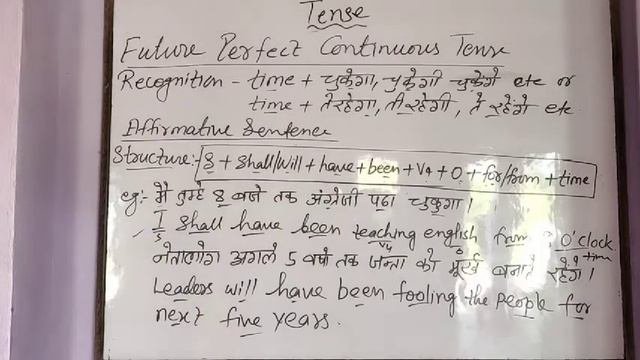 Tense
Future Perfect Continuous Tense
Recognition - time + चुकेगा, चुकेगी चुकेगें etc or
time + ते रहेगा, ती रहेगी, ते रहेंगे etc
Affirmative Sentence
Structure:- S + Shall/will + have + been + V4 + O + for/from + time
eg:- मै तुम्हे 8 बजे तक अंग्रेजी पढा चुकुगा।
I Shall have been teaching english from O'clock
S V4 O time
नेतालोग अगले 5 वर्षो तक जनता को मूर्ख बनाते रहेंगे।
Leaders will have been fooling the people for
next five years.